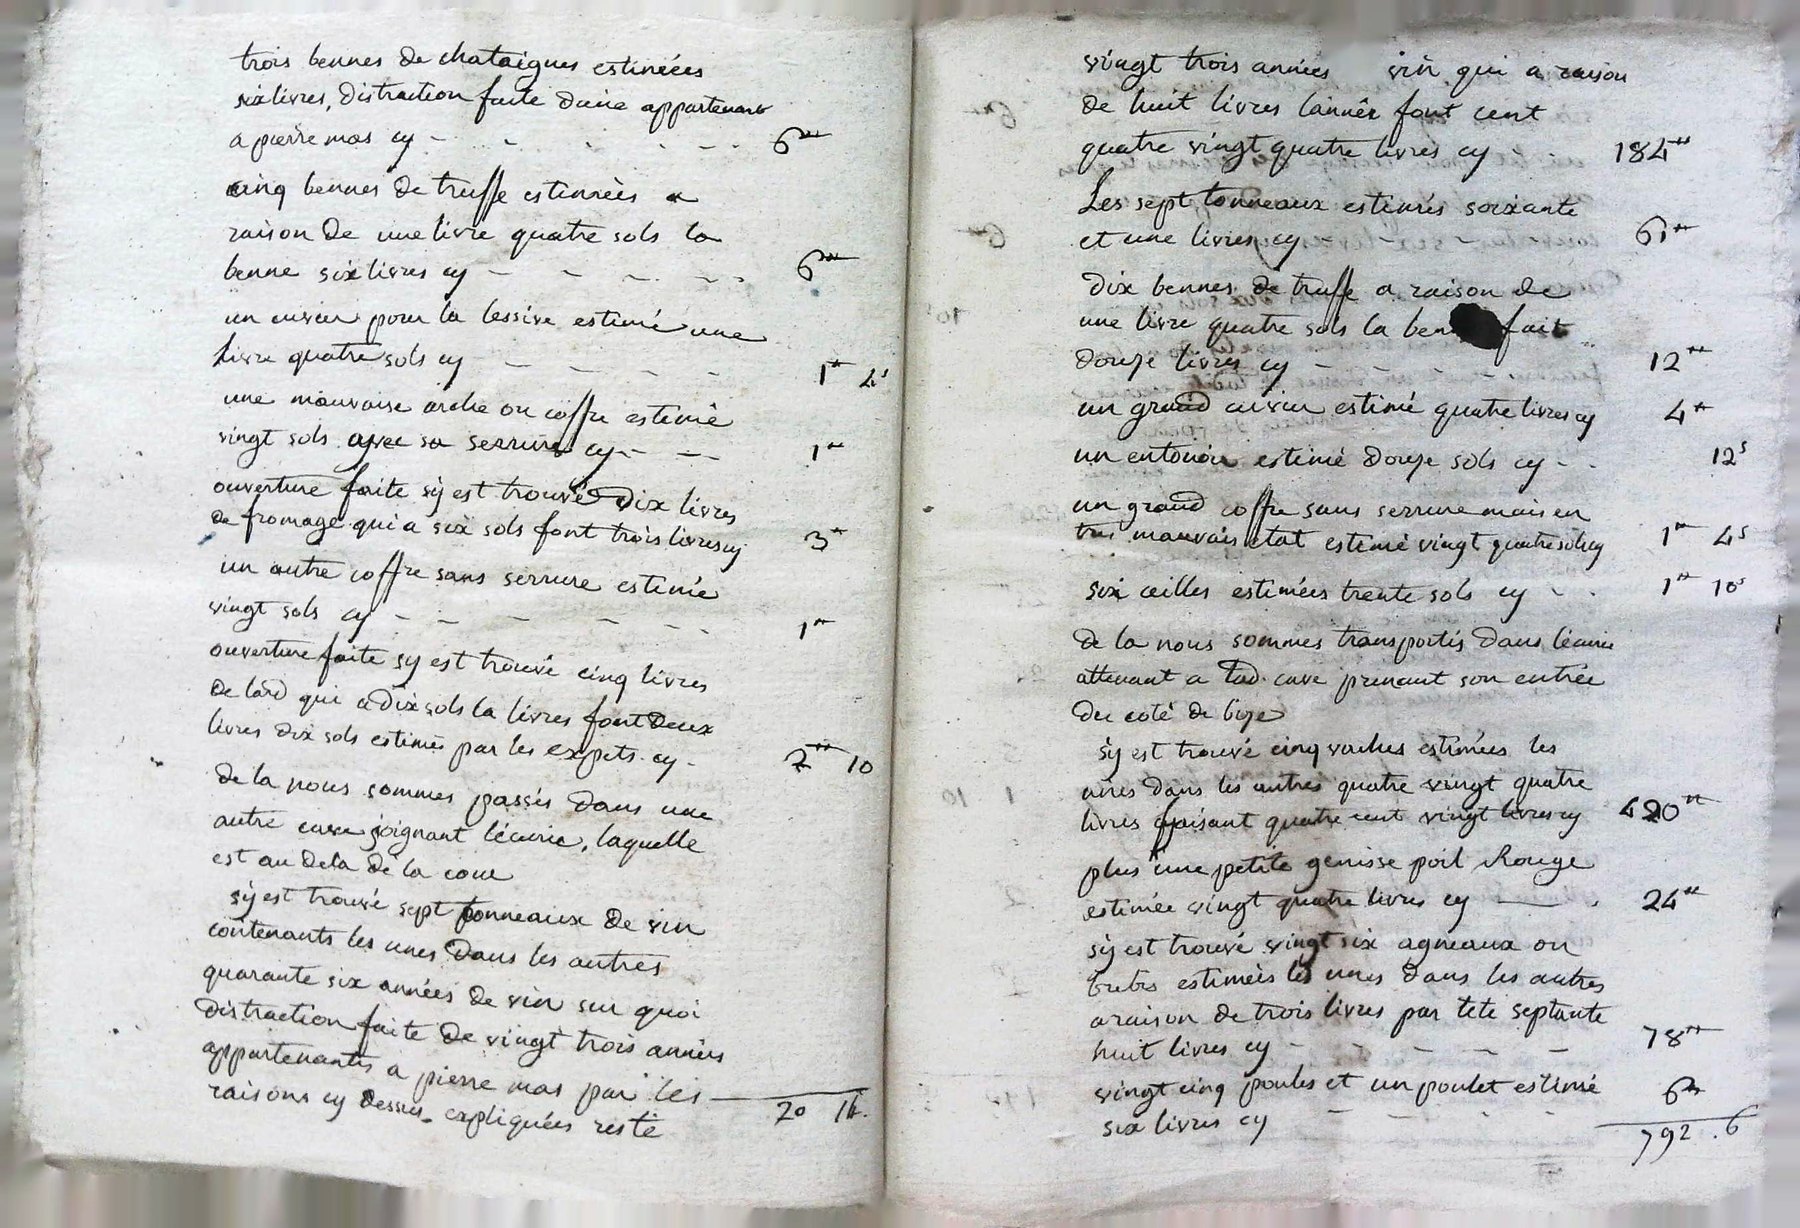 trois bennes de chataignes estimées
six livres, distraction faite d'une appartenant
a pierre mas cy - - - - - 6#
cinq bennes de truffe estimées a
raison de une livre quatre sols la
benne six livres cy - - - - - 6#
un cuvier pour la lessive estimé une
livre quatre sols cy - - - - - 1# 4s
une mauvaise arche ou coffre estimé
vingt sols avec sa serrure cy - - - 1#
ouverture faite sy est trouvé dix livres
de fromage qui a six sols font trois livres cy 3#
un autre coffre sans serrure estimé
vingt sols cy - - - - - 1#
ouverture faite sy est trouvé cinq livres
de lard qui a dix sols la livres font deux
livres dix sols estimés par les experts cy - 2# 10
de la nous sommes passés dans une
autre cave joignant l'écurie, laquelle
est au dela de la cour
sy est trouvé sept tonneaux de vin
contenants les unes dans les autres
quarante six années de vin sur quoi
distraction faite de vingt trois années
appartenants a pierre mas par les
raisons cy dessus expliquées reste
20 14.
vingt trois années vin qui a raison
de huit livres l'année font cent
quatre vingt quatre livres cy - - 184#
Les sept tonneaux estimés soixante
et une livres cy - - - - 61#
dix bennes de truffe a raison de
une livre quatre sols la ben fait
douze livres cy - - - - - 12#
un grand cuvier estimé quatre livres cy 4#
un entonoir estimé douze sols cy - - 12s
un grand coffre sans serrure mais en
tres mauvais état estimé vingt quatre sols cy 1# 4s
six ceilles estimées trente sols cy - - 1# 10s
de la nous sommes transportés dans l'écurie
attenant a lad. cave prenant son entrée
du coté de bize
sy est trouvé cinq vaches estimées les
unes dans les autres quatre vingt quatre
livres faisant quatre cent vingt livres cy 420#
plus une petite genisse poil Rouge
estimée vingt quatre livres cy - - 24#
sy est trouvé vingt six agneaux ou
brebis estimées les unes dans les autres
a raison de trois livres par tete septante
huit livres cy - - - - - 78#
vingt cinq poules et un poulet estimé
six livres cy - - - - - 6#
792 . 6